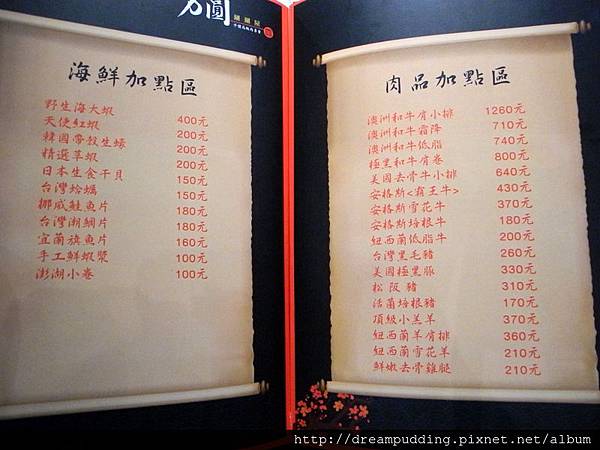 圓
海鮮加點區
野生海大蝦 400元
天使紅蝦 200元
韓國帶殼生蠔 200元
精選草蝦 200元
日本生食干貝 150元
台灣蛤蠣 150元
挪威鮭魚片 180元
台灣潮鯛片 180元
宜蘭旗魚片 160元
手工鮮蝦漿 100元
澎湖小卷 100元
肉品加點區
澳洲和牛肩小排 1260元
澳洲和牛霜降 710元
澳洲和牛低脂 740元
極黑和牛肩卷 800元
美國去骨牛小排 640元
安格斯<霸王牛> 430元
安格斯雪花牛 370元
安格斯培根牛 180元
紐西蘭低脂牛 200元
台灣黑毛豬 260元
美國極黑豚 330元
松阪豬 310元
活菌培根豬 170元
頂級小羔羊 370元
紐西蘭羊肩排 360元
紐西蘭雪花羊 210元
鮮嫩去骨雞腿 210元
http://dreampudding.pixnet.net/album